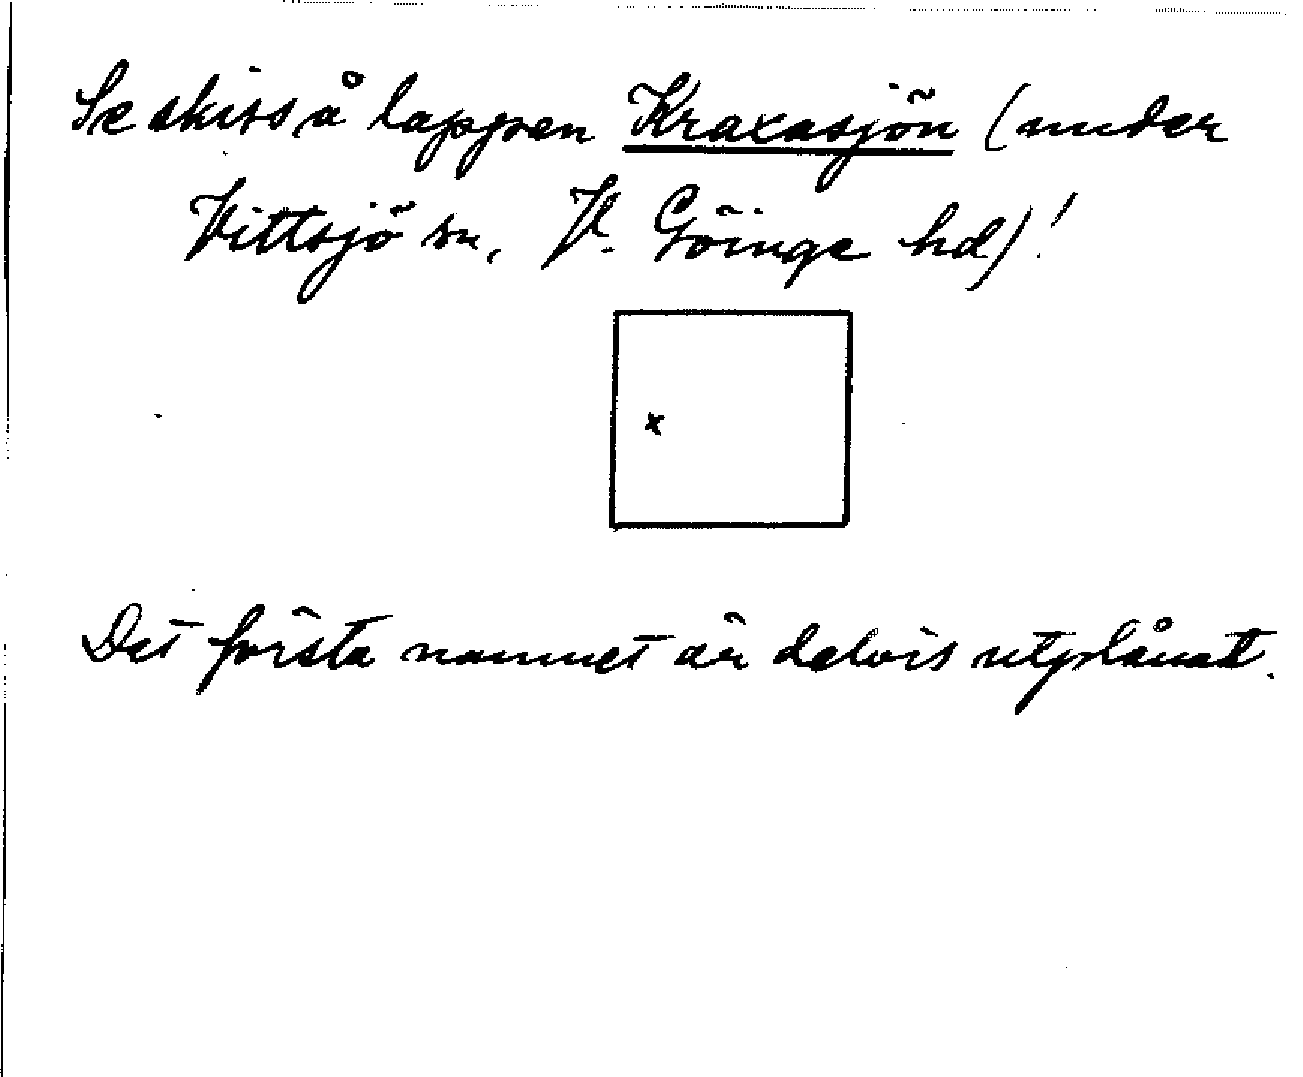 Se skiss å lappen Kraxasjön (under
Vittsjö sn, V. Göinge hd)!
x
Det första namnet är delvis utplånat.